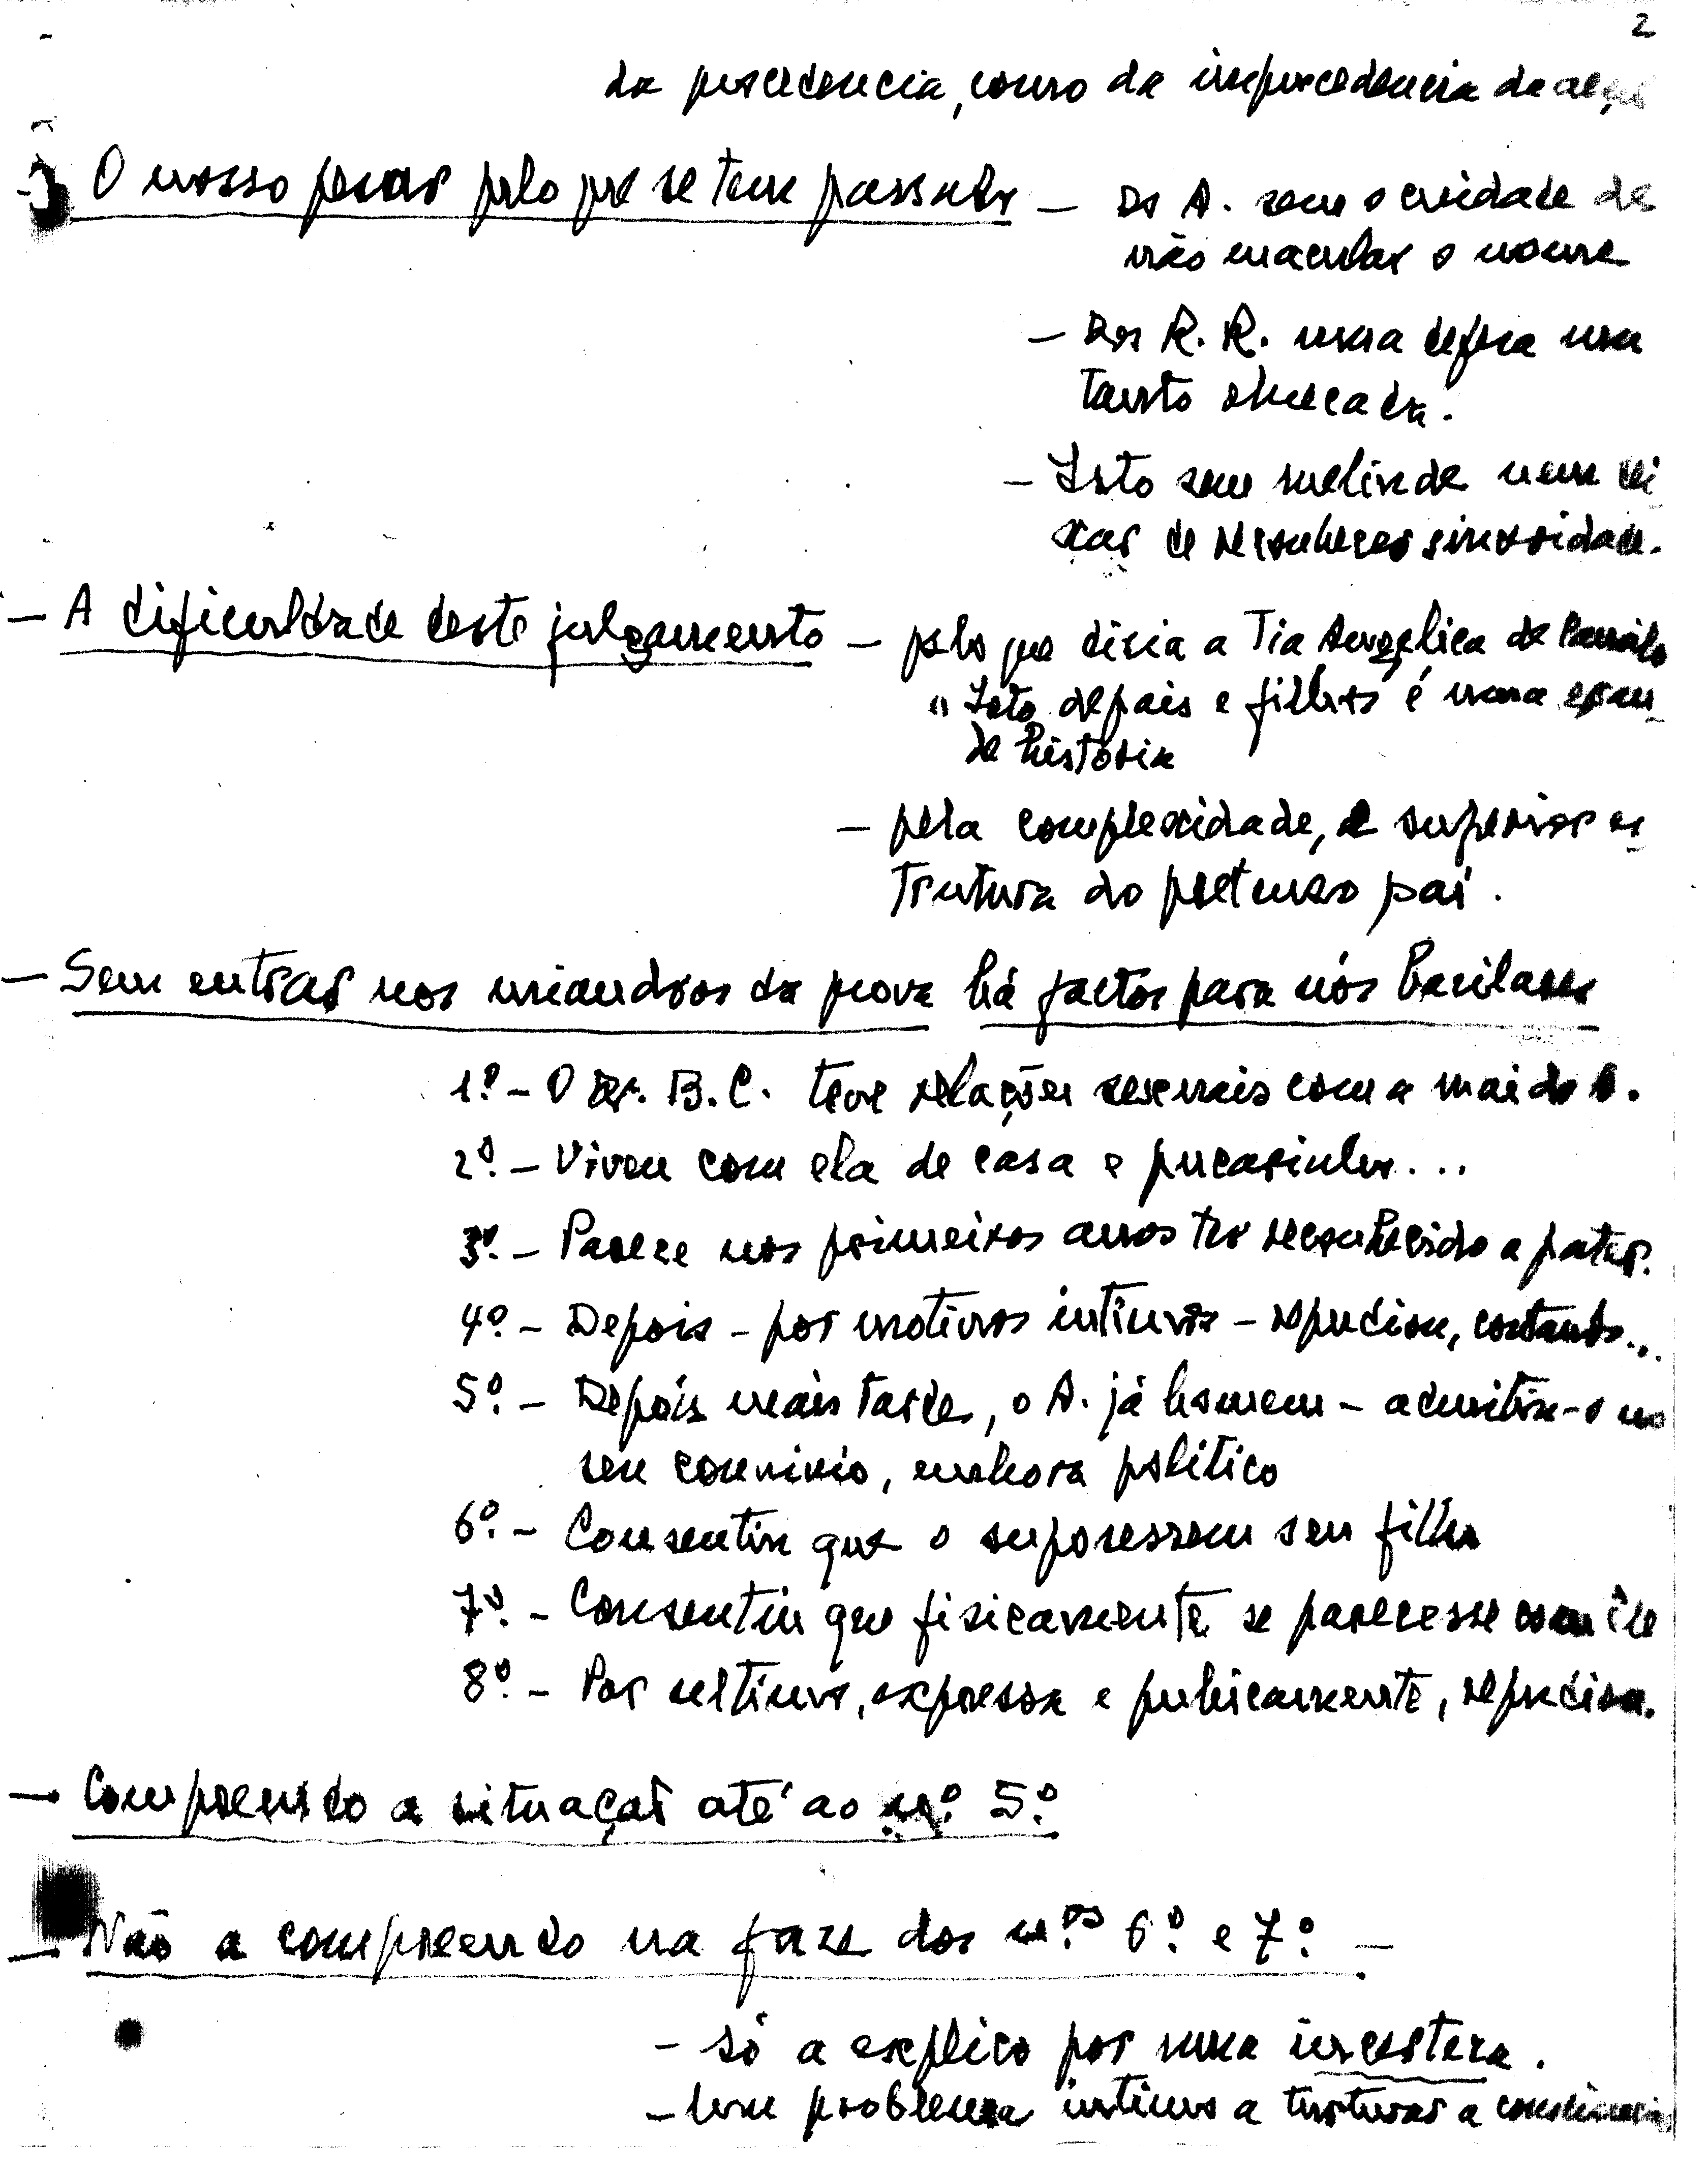 2
da procedencia, como da improcedencia da acção
- O nosso pesar pelo que se tem passado - Do A. sem o cuidado de
não macular o nome
- Dos R. R. numa defesa um
tanto obcecada.
- Isto sem melindre nem dei
xar de reconhecer sinceridade.
- A dificuldade deste julgamento - pelo que dizia a Tia Angélica de
"Isto de pais e filhos é uma gran
de história
- pela complexidade, e superior es
trutura do pretenso pai.
- Sem entrar nos meandros da prova há factos para nós basilares
1º. - O Dr. B. C. teve relações sexuais com a mãi do A.
2º. - Viveu com ela de casa e pucarinho...
3º. - Parece nos primeiros anos ter reconhecido a pater.
4º. - Depois - por motivos intimos - repudiou, contando...
5º. - Depois mais tarde, o A. já homem - admitiu-o no
seu convivio, embora politico
6º. - Consentiu que o supozessem seu filho
7º. - Consentiu que fisicamente se parecesse com êle
8º. - Por ultimo, expressa e publicamente, repudiou.
- Compreendo a situação até ao nº. 5º.
- Não a compreendo na faze dos n.ºs 6º. e 7º. -
- só a explico por uma incerteza.
- um problema intimo a torturar a consciencia